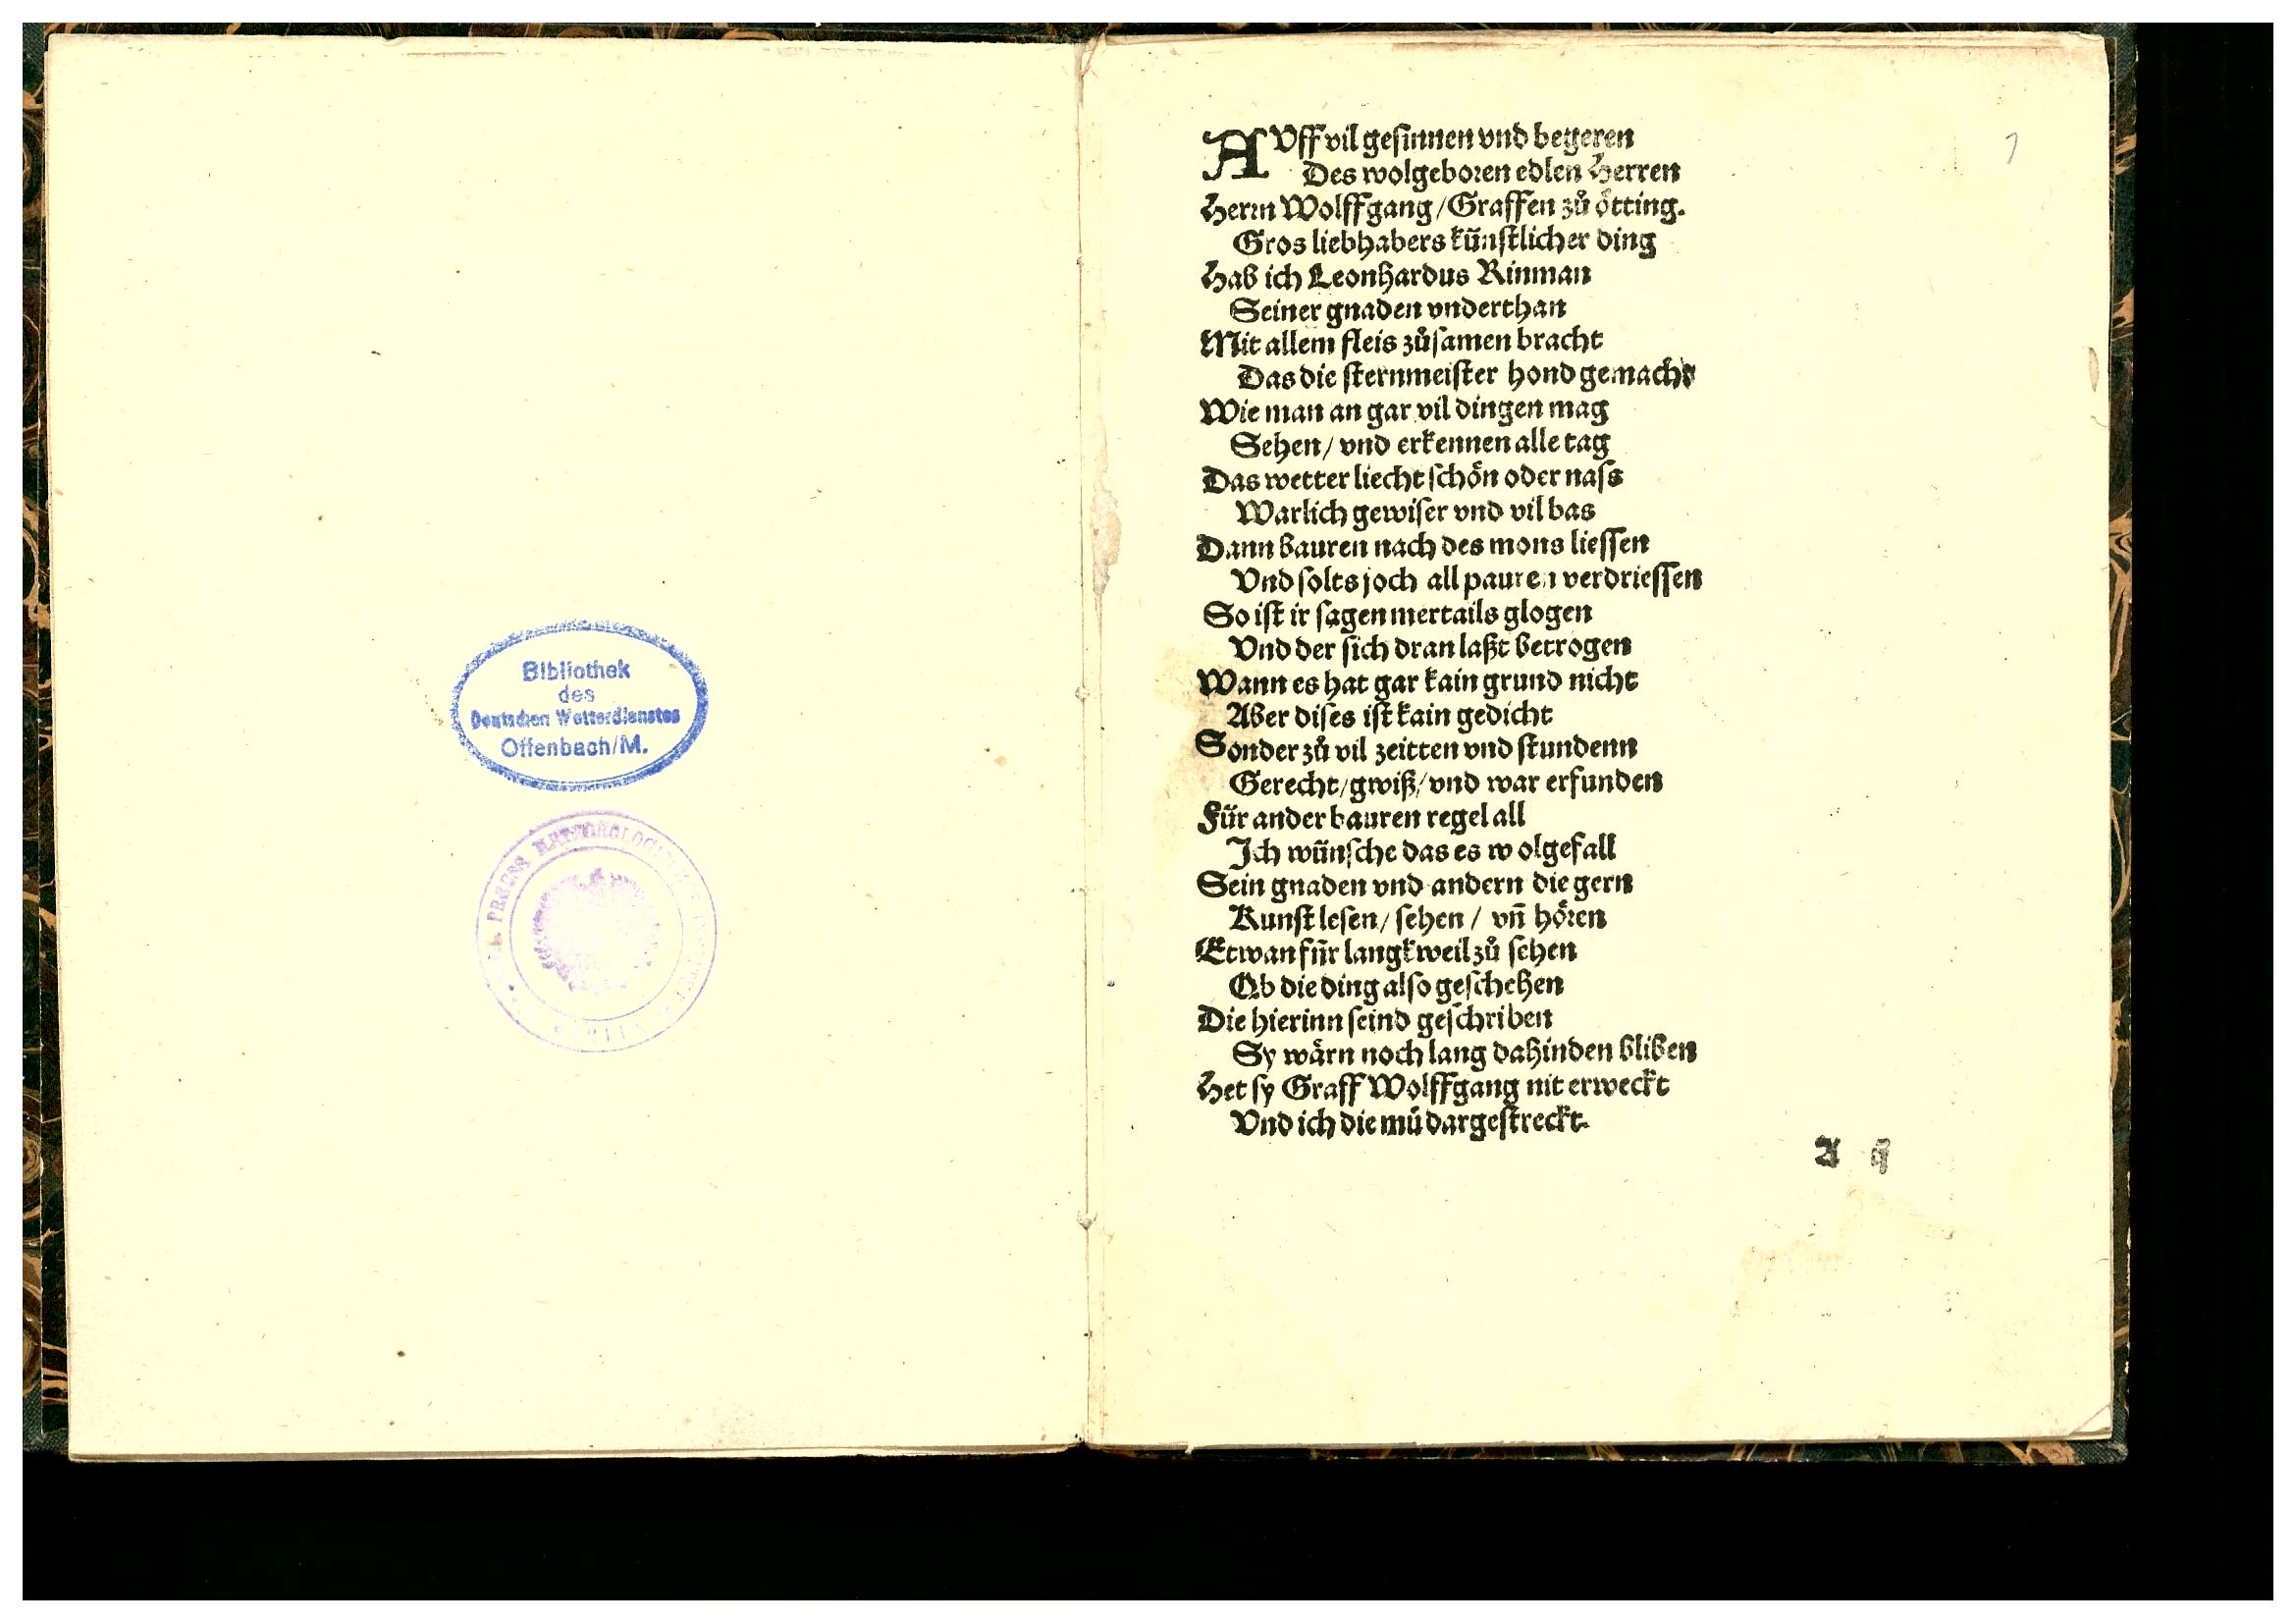 Bibliothek
des
Deutschen Wetterdienstes
Offenbach/M.
PREUSS METEOROLOGISCHES
BERLIN
1
AVff vil gesinnen vnd begeren
Des wolgeboren edlen Herren
Herrn Wolffgang/Graffen zů ötting.
Gros liebhabers künstlicher ding
Hab ich Leonhardus Rinman
Seiner gnaden vnderthan
Mit allem fleis zůsamen bracht
Das die sternmeister hond gemacht
Wie man an gar vil dingen mag
Sehen/ vnd erkennen alle tag
Das wetter liecht schön oder nass
Warlich gewiser vnd vil bas
Dann bauren nach des mons liessen
Vnd solts joch all pauren verdriessen
So ist ir sagen mertails glogen
Vnd der sich dran laßt betrogen
Wann es hat gar kain grund nicht
Aber dises ist kain gedicht
Sonder zů vil zeitten vnd stundenn
Gerecht/gwiß/vnd war erfunden
Für ander bauren regel all
Ich wünsche das es wolgefall
Sein gnaden vnd andern die gern
Kunst lesen/ sehen / vn̄ hören
Etwan für langkweil zů sehen
Ob die ding also geschehen
Die hierinn seind geschriben
Sy wärn noch lang dahinden bliben
Het sy Graff Wolffgang nit erweckt
Vnd ich die mů dargestreckt.
A ij